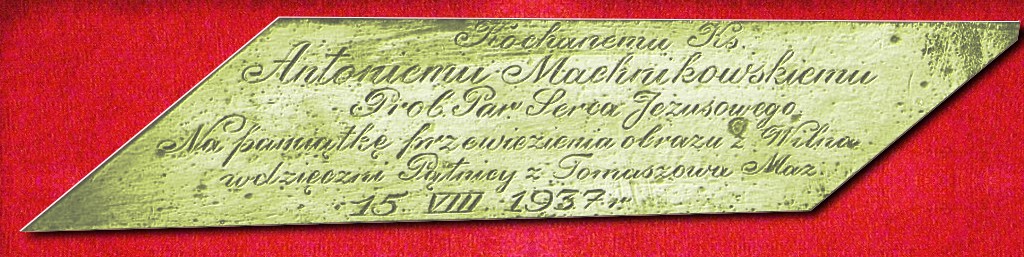 Kochanemu Ks.
Antoniemu Machnikowskiemu
Prob. Par. Serca Jezusowego
Na pamiątkę przewiezienia obrazu z Wilna
wdzięczni Pątnicy z Tomaszowa Maz.
15. VIII 1937 r